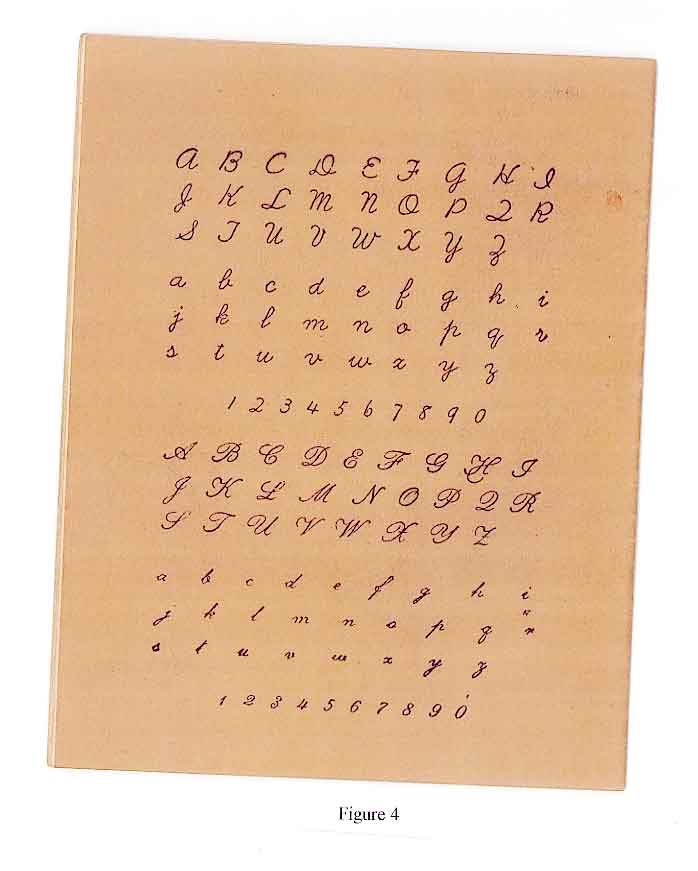 A B C D E F G H I
J K L M N O P Q R
S T U V W X Y Z
a b c d e f g h i
j k l m n o p q r
s t u v w x y z
1 2 3 4 5 6 7 8 9 0
A B C D E F G H I
J K L M N O P Q R
S T U V W X Y Z
a b c d e f g h i
j k l m n o p q r
s t u v w x y z
1 2 3 4 5 6 7 8 9 0
Figure 4